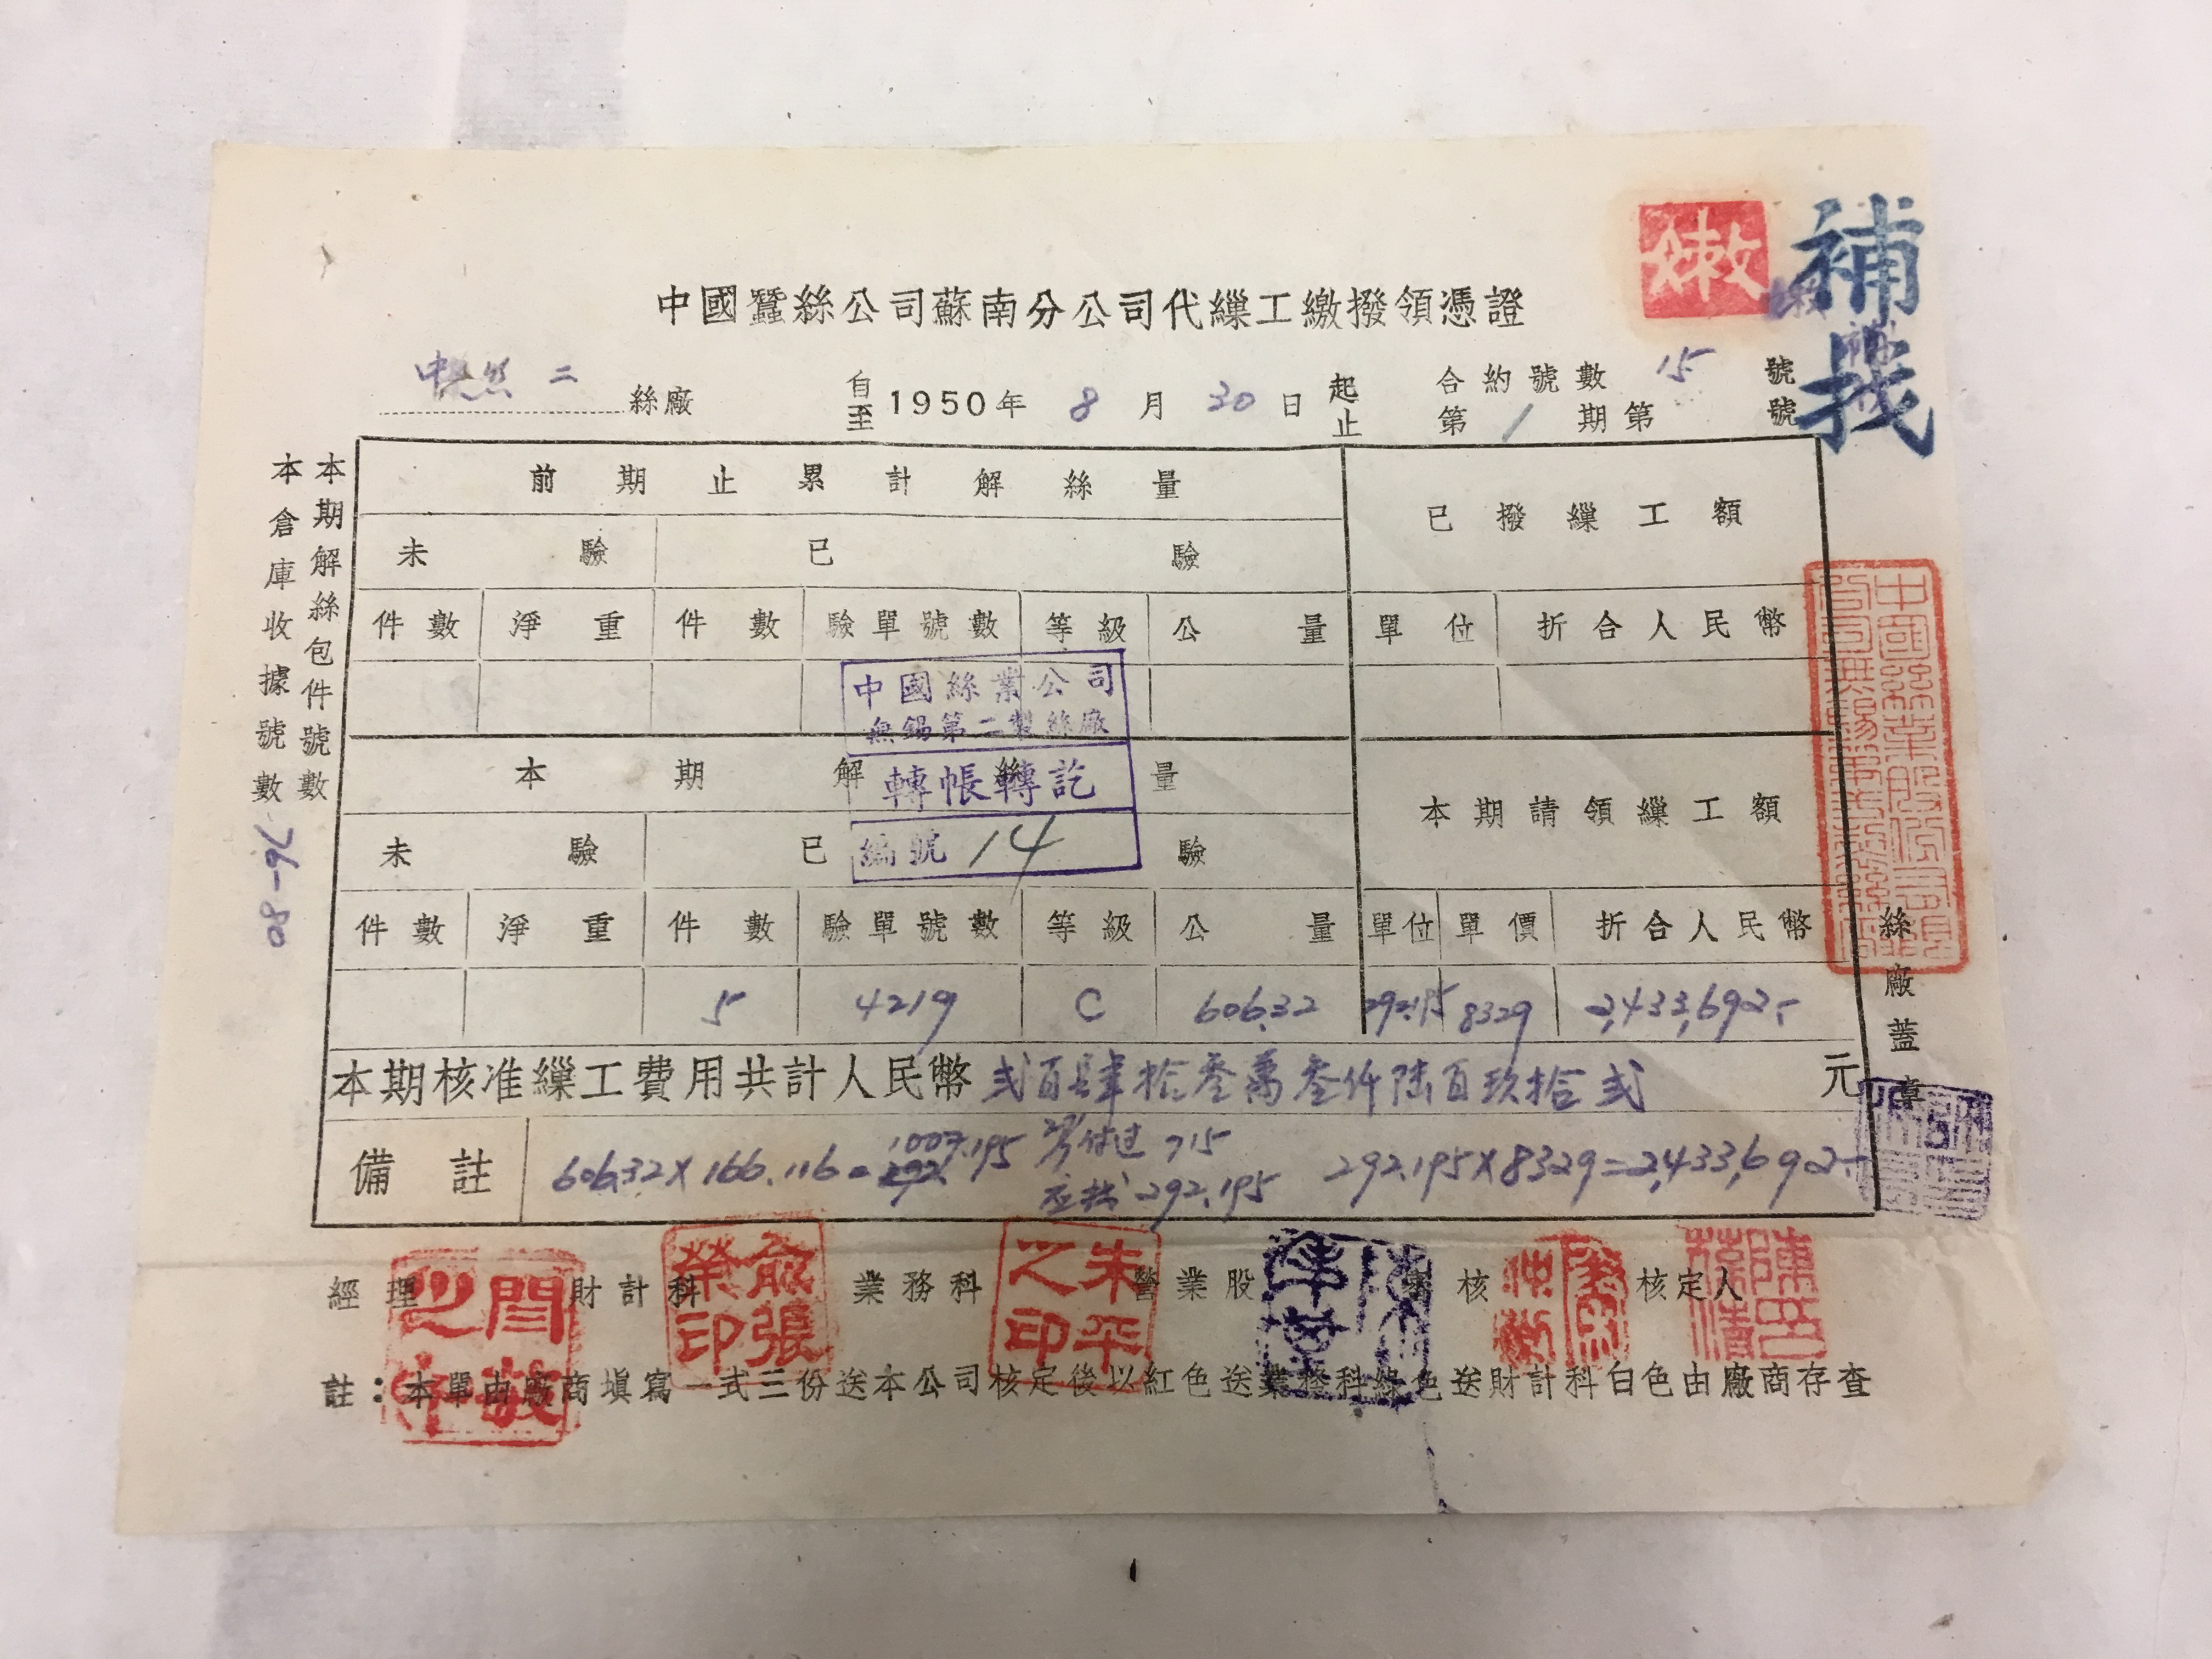 補找
中國蠶絲公司蘇南分公司代繅工繳撥領憑證
中絲二 絲廠 自至1950年8月30日起止 合約號數15號
第1期第 號
本期解絲包件號數
本倉庫收據號數 76-80
前期止累計解絲量 已撥繅工額
未驗 已驗
件數 淨重 件數 驗單號數 等級 公量 單位 折合人民幣
中國絲業公司
無錫第二製絲廠
轉帳轉訖
編號 14
本期解絲量 本期請領繅工額
未驗 已驗
件數 淨重 件數 驗單號數 等級 公量 單位 單價 折合人民幣
5 4219 C 606.32 292.195 8329 2,433,692.-
本期核准繅工費用共計人民幣 弍百肆拾叁萬叁仟陸百玖拾弍 元
備註 606.32×166.116=1007.195 付过 715 292.195×8329=2,433,692.-
应找 292.195
絲廠蓋章
經理 財計科 業務科 營業股 審核 核定人
俞張榮印
朱平之印
註：本單由廠商填寫一式三份送本公司核定後以紅色送業務科綠色送財計科白色由廠商存查